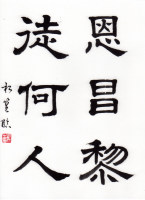 恩昌黎
徒何人